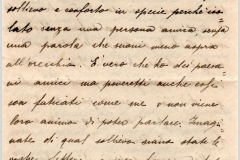 sollievo e conforto in specie perchè iso
lato senza una persona amica senza
una parola che suoni meno aspra
all'orecchio. E' vero che ho dei paesa
ni amici ma poveretti anche essi
son faticati come me e non viene
loro animo di poter parlare. Imagi
nate di qual sollievo siano state le
vostre lettere e